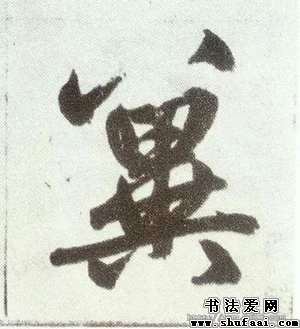 冀
书法爱网
www.shufaai.com